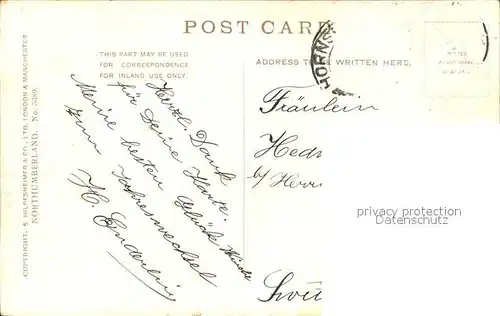 POST CARD
THIS PART MAY BE USED
FOR CORRESPONDENCE
FOR INLAND USE ONLY.
ADDRESS TO BE WRITTEN HERE.
HORNS
COPYRIGHT. S. HILDESHEIMER & CO., LTD. LONDON & MANCHESTER
NORTHUMBERLAND. No.
Herzl. Dank
für Deine Karte.
Meine besten Glückwünsche
zum Jahreswechsel
H. Enderlein
Fräulein
Hed
b/ Herrn
privacy protection
www.ansichtskartenversand.com